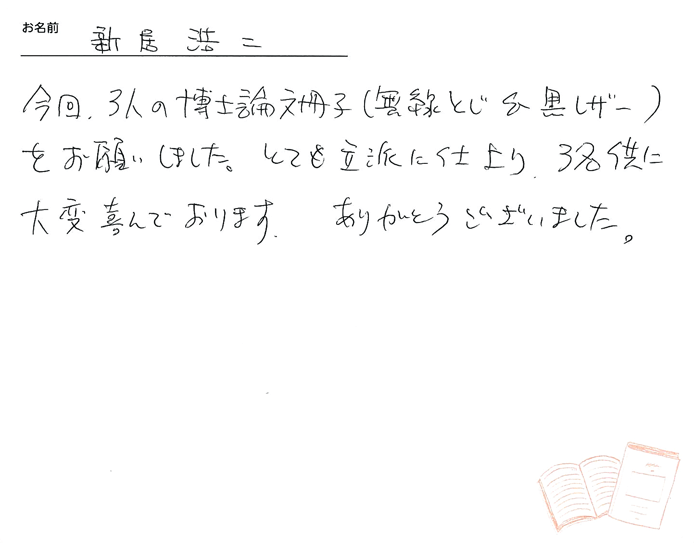 お名前 新居 浩二
今回、3人の博士論文冊子(無線とじ&黒レザー)
をお願いしました。とても立派に仕上り、3名供に
大変喜んでおります。 ありがとうございました。